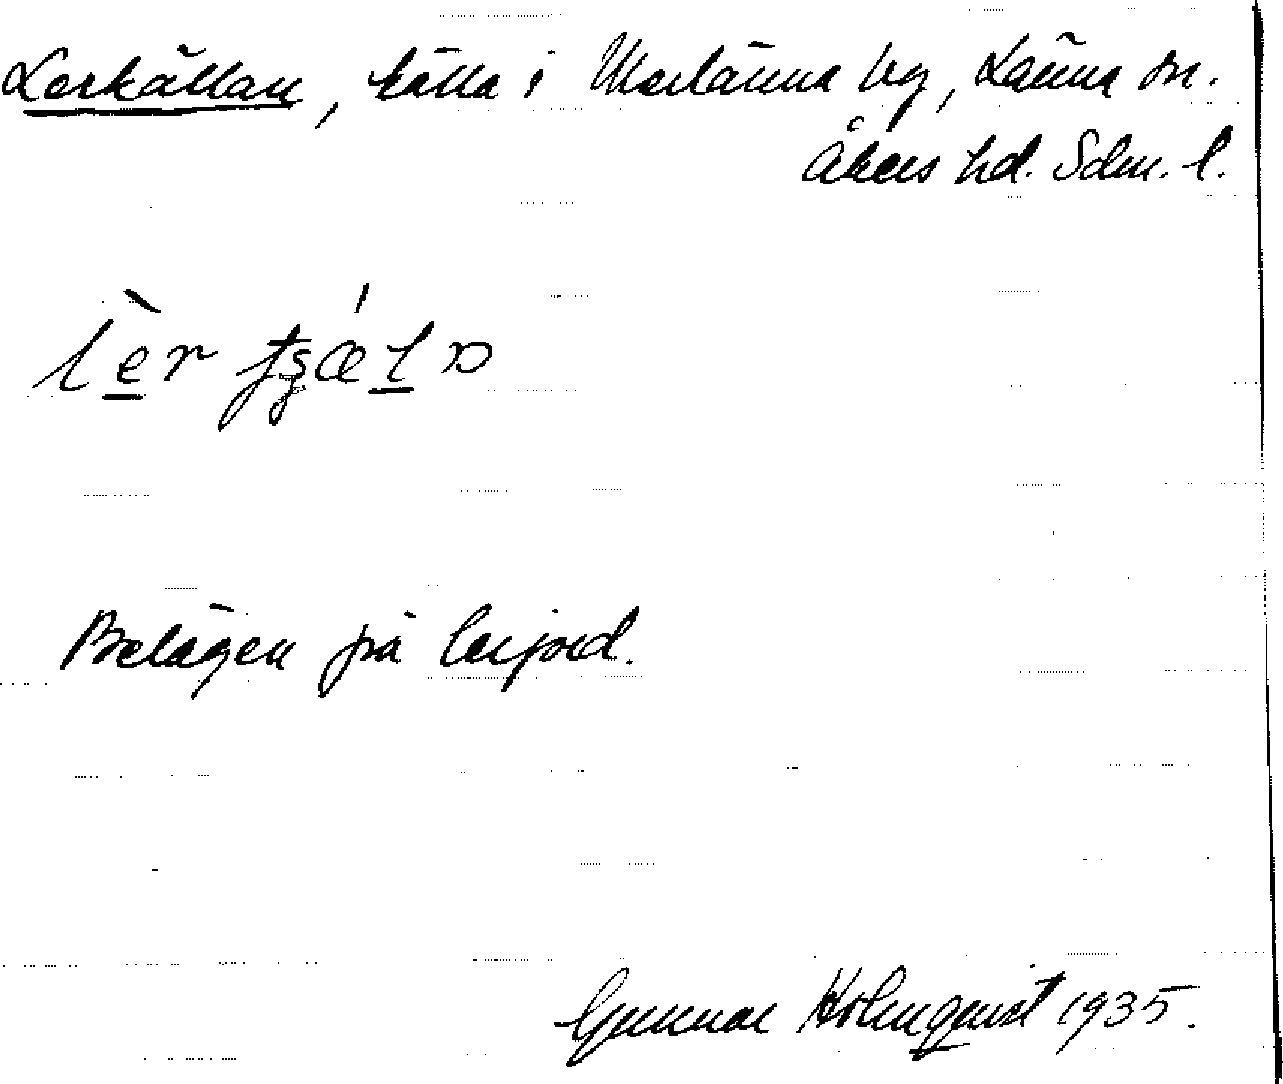 Lerkällan, källa i Merlänna by, Länna sn.
Åkers hd. Sdm. l.
Belägen på lerjord.
Gunnar Holmquist 1935.